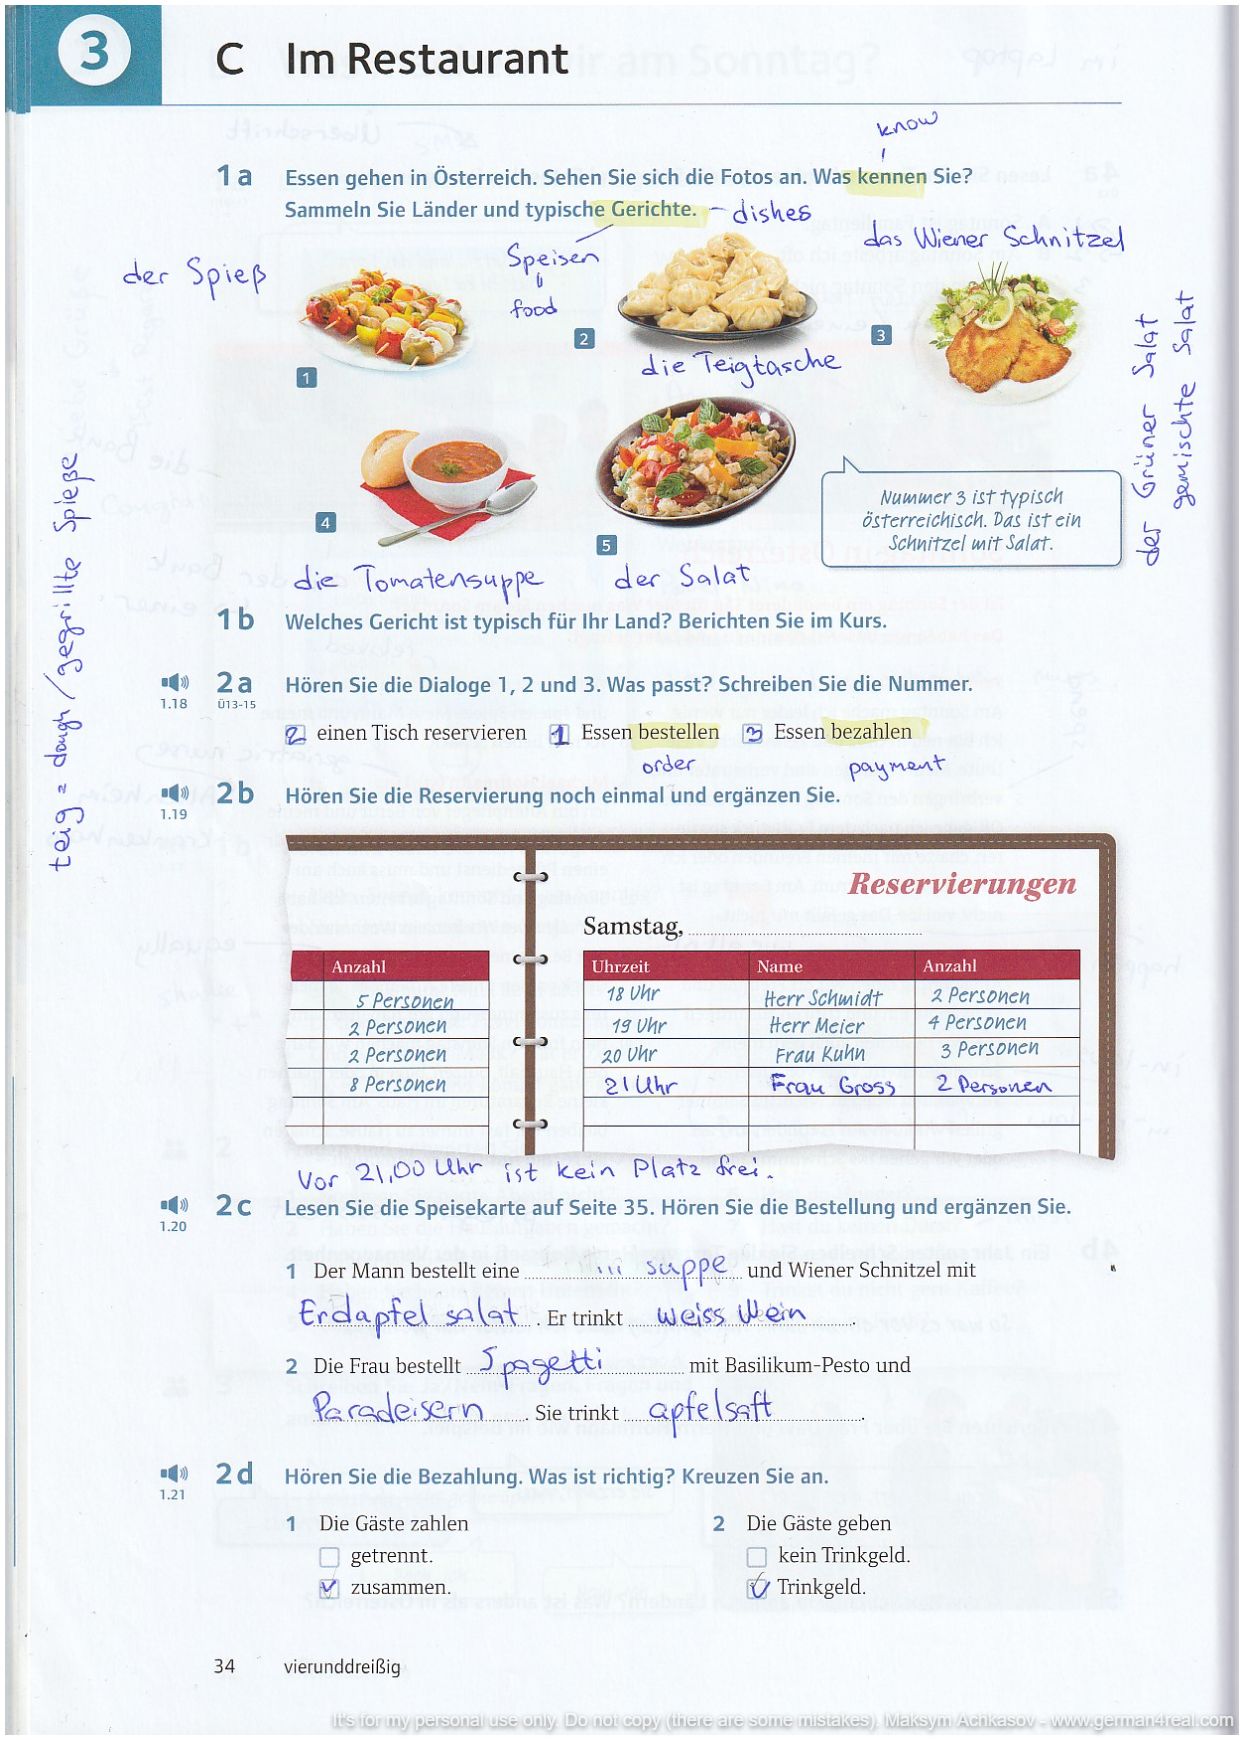 3
C Im Restaurant
know
1a Essen gehen in Österreich. Sehen Sie sich die Fotos an. Was kennen Sie?
Sammeln Sie Länder und typische Gerichte. - dishes
der Spieß
Speisen
food
das Wiener Schnitzel
1
2
3
die Teigtasche
der Grüner Salat
gemischte Salat
4
5
Nummer 3 ist typisch
österreichisch. Das ist ein
Schnitzel mit Salat.
die Tomatensuppe
der Salat
teig = dough / gegrillte Spieße
1b Welches Gericht ist typisch für Ihr Land? Berichten Sie im Kurs.
1.18
2a Hören Sie die Dialoge 1, 2 und 3. Was passt? Schreiben Sie die Nummer.
Ü13-15
2 einen Tisch reservieren 1 Essen bestellen 3 Essen bezahlen
order payment
1.19
2b Hören Sie die Reservierung noch einmal und ergänzen Sie.
Reservierungen
Samstag,
Anzahl Uhrzeit Name Anzahl
5 Personen 18 Uhr Herr Schmidt 2 Personen
2 Personen 19 Uhr Herr Meier 4 Personen
2 Personen 20 Uhr Frau Kuhn 3 Personen
8 Personen 21 Uhr Frau Gross 2 Personen
Vor 21,00 Uhr ist kein Platz frei.
1.20
2c Lesen Sie die Speisekarte auf Seite 35. Hören Sie die Bestellung und ergänzen Sie.
1 Der Mann bestellt eine ... suppe und Wiener Schnitzel mit
Erdapfel salat. Er trinkt weiss Wein.
2 Die Frau bestellt Spagetti mit Basilikum-Pesto und
Paradeisern. Sie trinkt apfelsaft.
1.21
2d Hören Sie die Bezahlung. Was ist richtig? Kreuzen Sie an.
1 Die Gäste zahlen
getrennt.
zusammen.
2 Die Gäste geben
kein Trinkgeld.
Trinkgeld.
34 vierunddreißig
It's for my personal use only. Do not copy (there are some mistakes). Maksym Achkasov - www.german4real.com